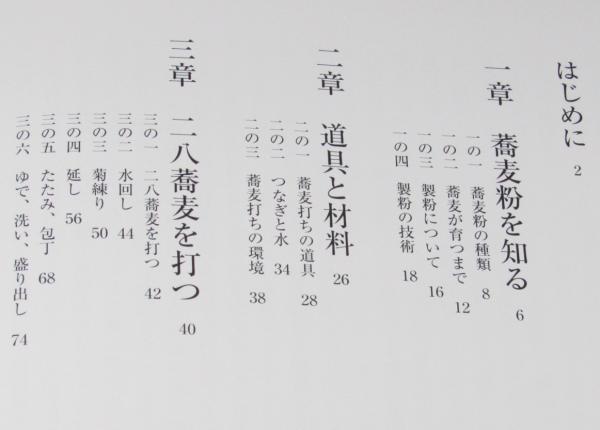 はじめに 2
一章 蕎麦粉を知る 6
一の一 蕎麦粉の種類 8
一の二 蕎麦が育つまで 12
一の三 製粉について 16
一の四 製粉の技術 18
二章 道具と材料 26
二の一 蕎麦打ちの道具 28
二の二 つなぎと水 34
二の三 蕎麦打ちの環境 38
三章 二八蕎麦を打つ 40
三の一 二八蕎麦を打つ 42
三の二 水回し 44
三の三 菊練り 50
三の四 延し 56
三の五 たたみ、包丁 68
三の六 ゆで、洗い、盛り出し 74